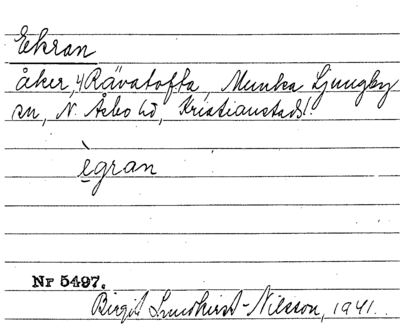 Ekran
åker, 4 Rävatofta, Munka Ljungby
sn, N. Åsbo hd, Kristianstads l.
ègran
Nr 5497.
Birgit Lundkvist-Nilsson, 1941.